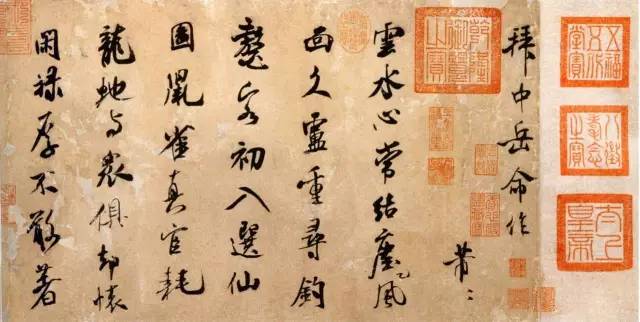 五福五代堂寶
八徵耄念之寶
太上皇帝
拜中岳命作
芾〻
雲水心常結塵風
面久盧重尋釣
鼇客初入選仙
圖鼠雀真官耗
龍虵与衆俱却懷
閑祿厚不敢著